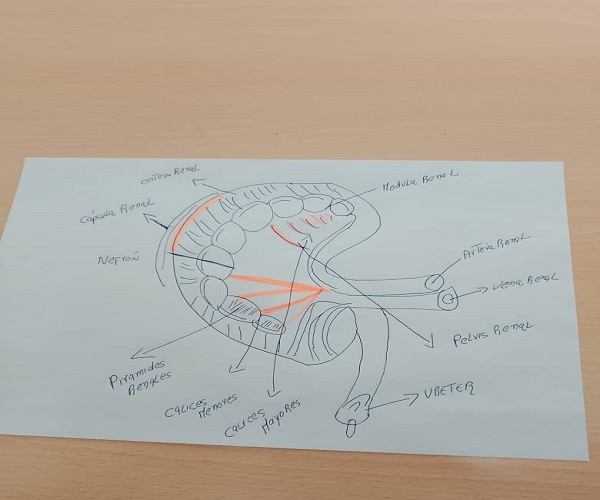 corteza Renal
Medula Renal
Cápsula Renal
Arteria Renal
Nefron
Vena Renal
Pelvis Renal
Piramides
Renales
Calices
Menores
Calices
Mayores
URETER